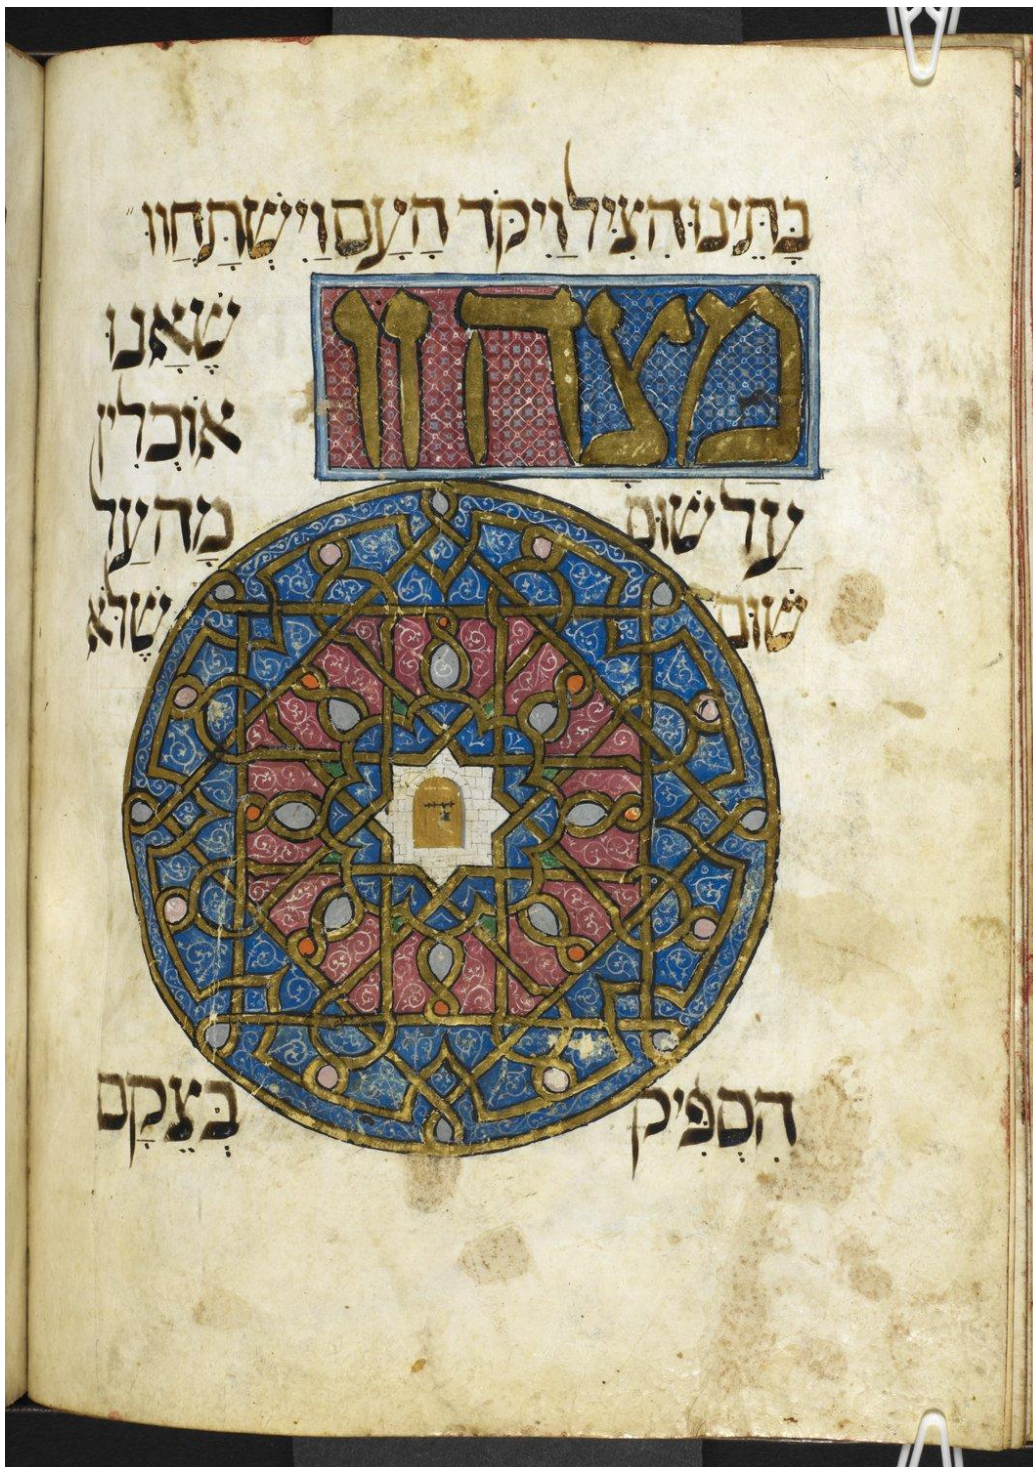 בָּתֵּינוּ הִצִּיל וַיִּקֹּד הָעָם וַיִּשְׁתַּחֲווּ
מצה זו שֶׁאַנוּ
אוֹכְלִין
עַל שׁוּם מַה עַל
שׁוּם שֶׁלֹא
הִסְפִּיק בְּצֵקָם